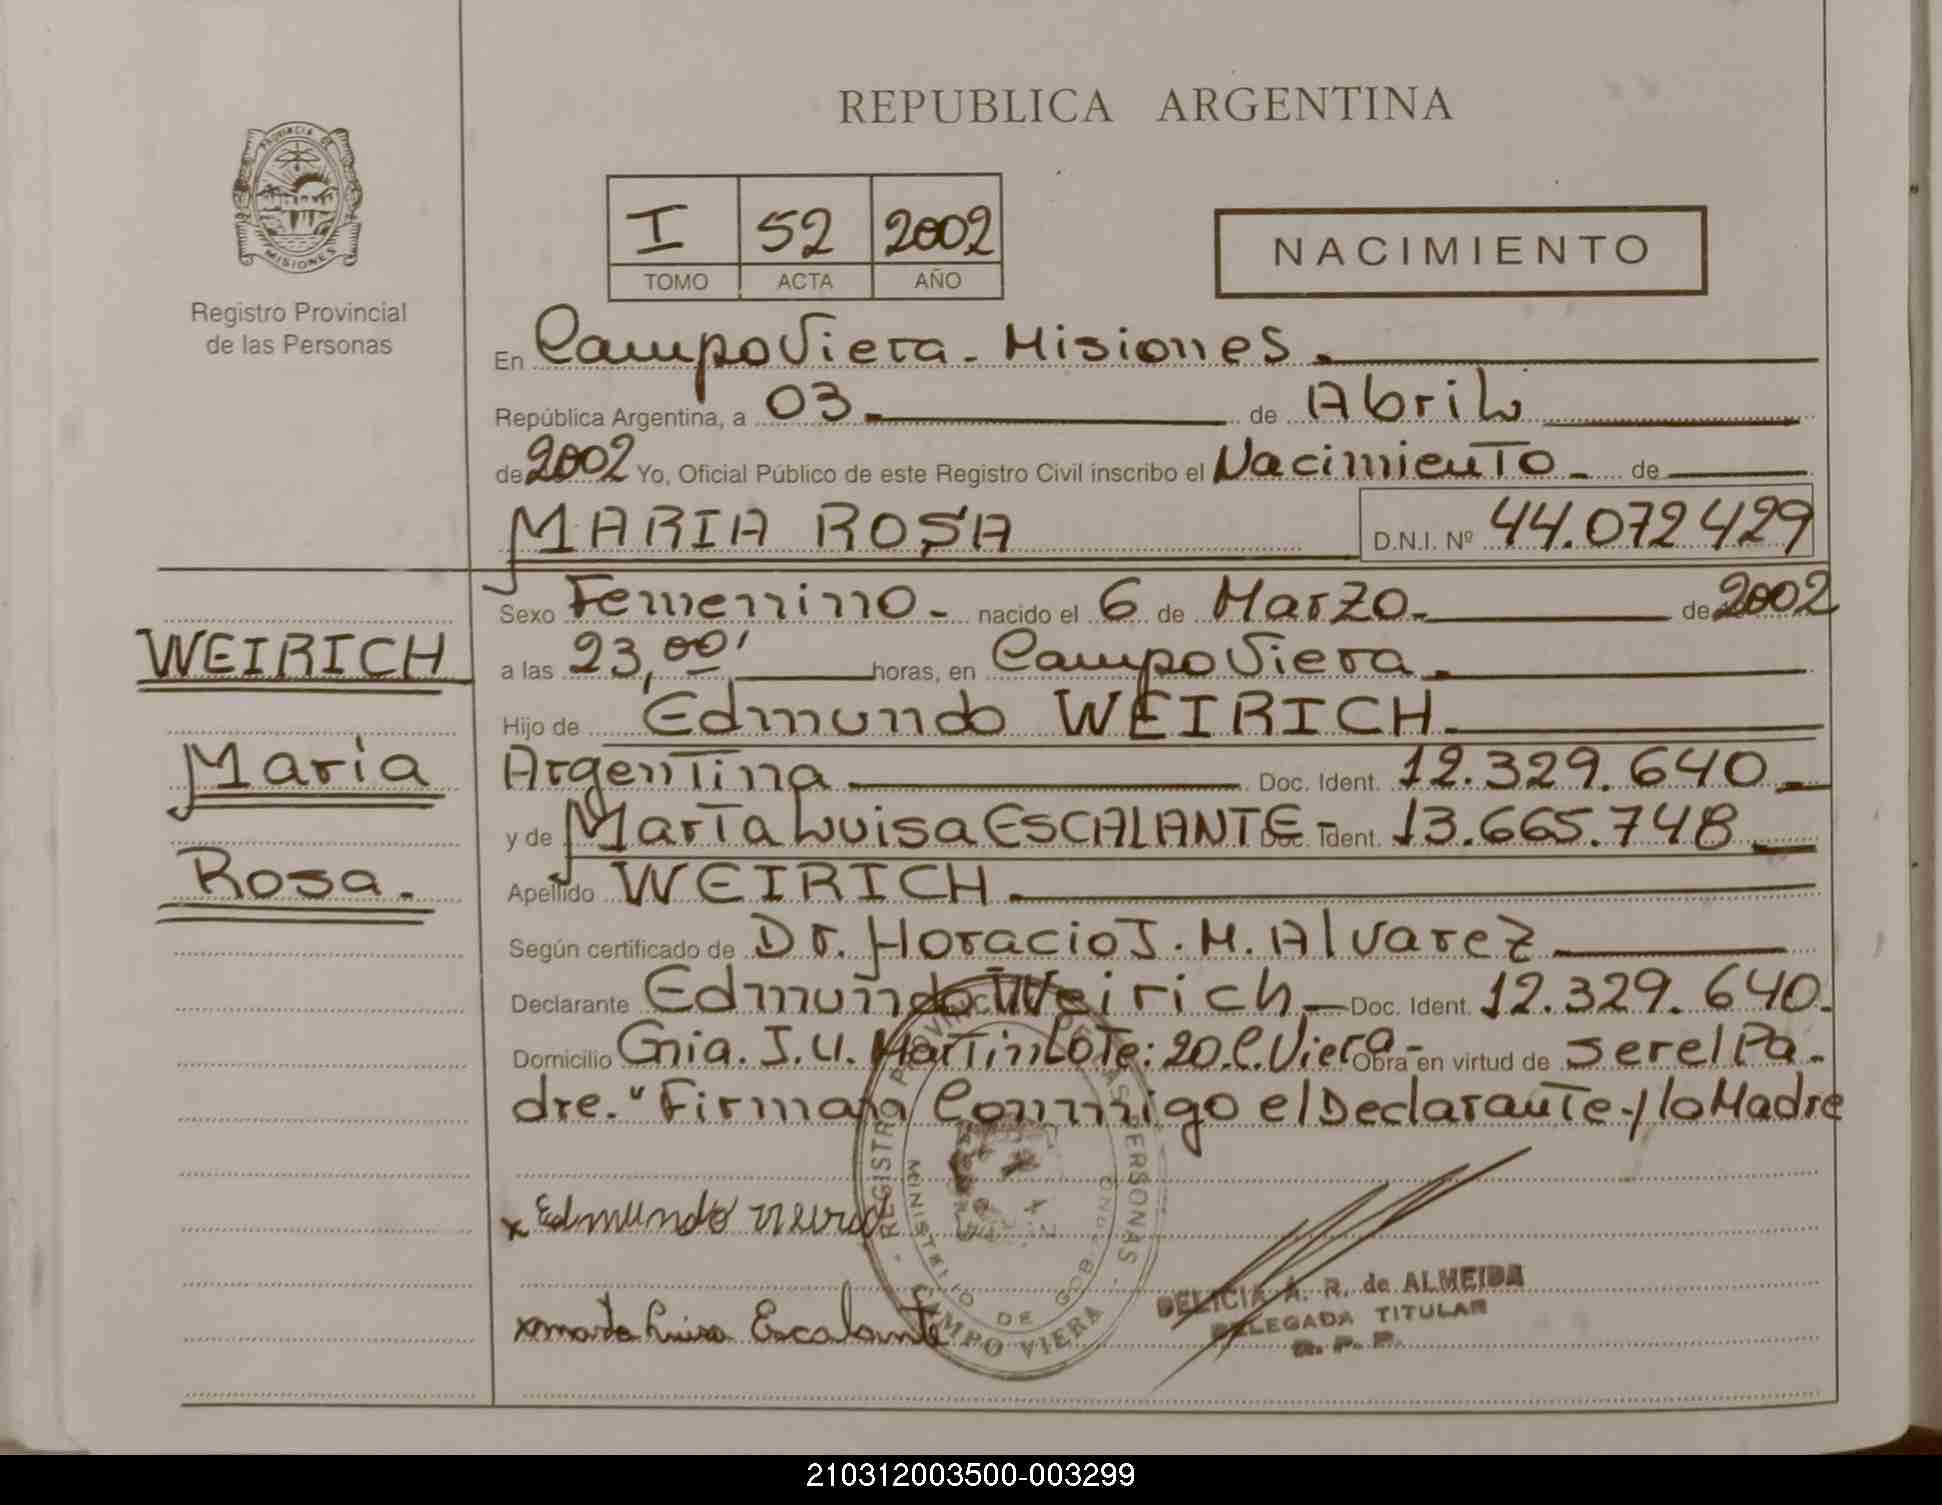 REPUBLICA ARGENTINA
PROVINCIA DE
MISIONES
Registro Provincial
de las Personas
I 52 2002
TOMO ACTA AÑO
NACIMIENTO
En Campo Viera - Misiones.
República Argentina, a 03 de Abril
de 2002 Yo, Oficial Público de este Registro Civil inscribo el Nacimiento de
MARIA ROSA D.N.I. Nº 44.072429
Sexo Femenino - nacido el 6 de Marzo de 2002
a las 23,00' horas, en Campo Viera
Hijo de Edmundo WEIRICH
Argentina Doc. Ident. 12.329.640
y de Marta Luisa ESCALANTE Doc. Ident. 13.665.748
Apellido WEIRICH
Según certificado de Dr. Horacio J. M. Alvarez
Declarante Edmundo Weirich Doc. Ident. 12.329.640.
Domicilio Cnia. J.U. Martin Lote: 20.C. Viera - Obra en virtud de ser el Pa-
dre. "Firman Conmigo el Declarante y la Madre
WEIRICH
Maria
Rosa.
x Edmundo
x marta Luisa Escalante
REGISTRO PROVINCIAL DE LAS PERSONAS
MINISTERIO DE GOB.
CAMPO VIERA
DELICIA A. R. de ALMEIDA
DELEGADA TITULAR
R. P. P.
210312003500-003299